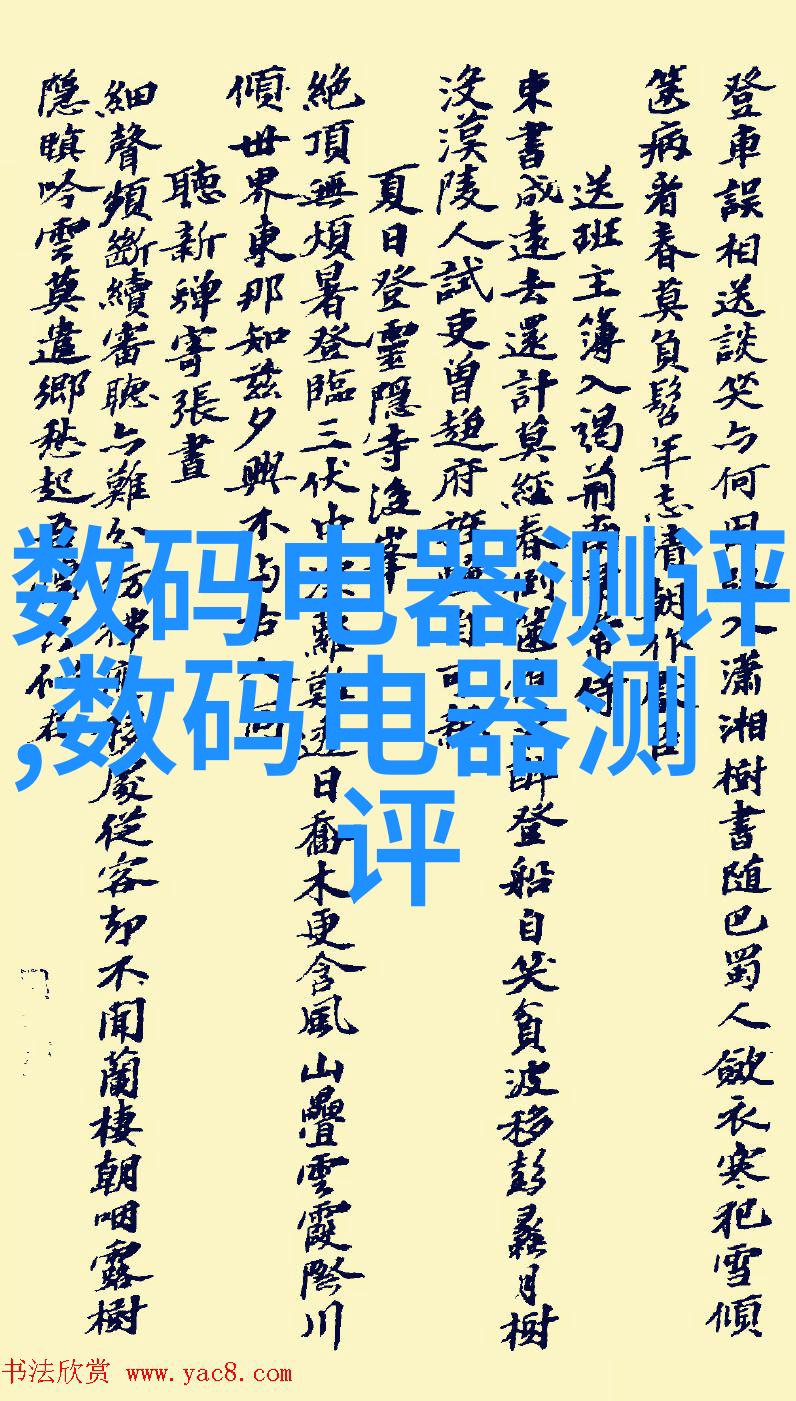 登車誤相送談笑亦何因
瀟湘樹書随巴蜀人斂衣寒犯雪傾
篋病看春莫負髫年志清朝作獻臣
送班主簿入謁荆
東書成遠去還計莫經春倒篋
登船自笑貧波移彭蠡月樹
没漢陵人試吏曾趨府
夏日登靈隱寺後峯
絶頂無煩暑登臨三伏中深蘿難透日喬木更含風山疊雲霞際川
傾世界東那知兹夕興不与古人同
聽新蟬寄張晝
細聲頻斷續審聽亦難分
處從容却不聞蘭棲朝咽露樹
隱暝吟雲莫遣鄉愁起
数码电器测评
,数码电器测
评
书法欣赏 www.yac8.com